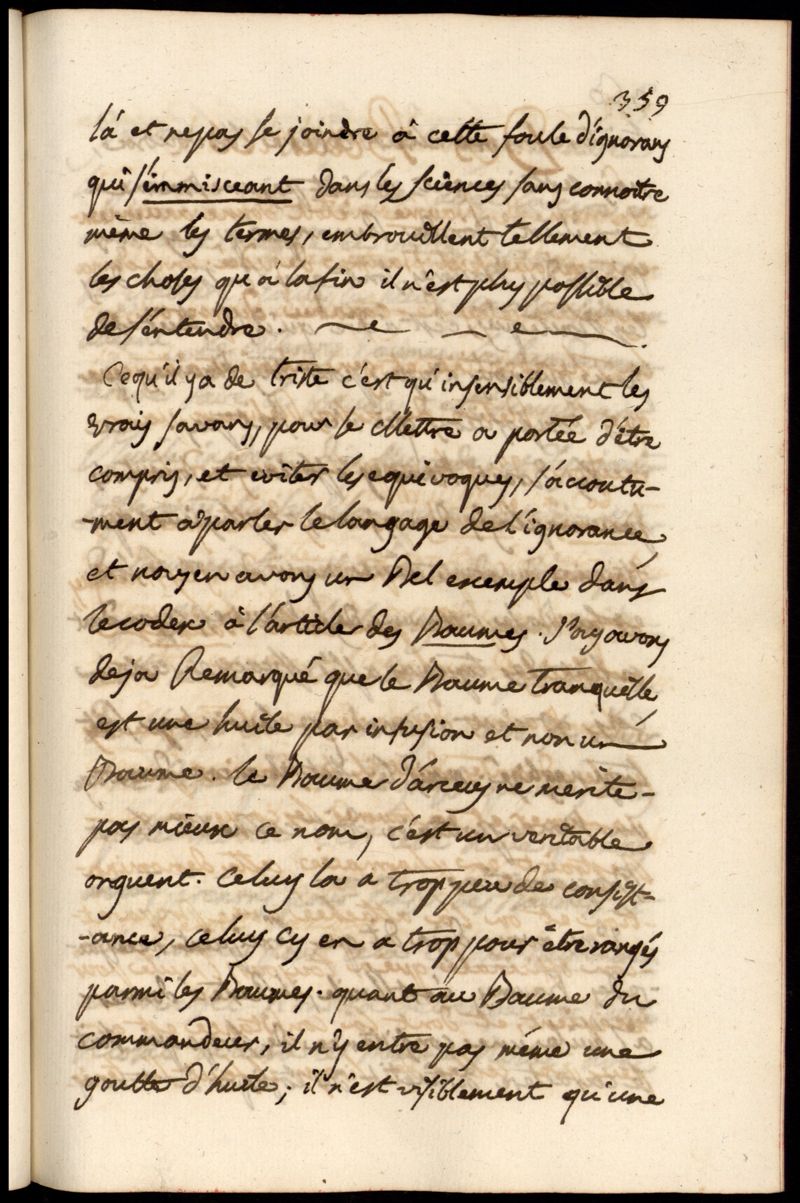 359
là et ne pas se joindre à cette foule d'ignorans
qui s'immisceant dans les sciences sans connoitre
même les termes, embrouillent tellement
les choses qu'à la fin il n'est plus possible
de s'entendre.
Ce qu'il y a de triste c'est qu'insensiblement les
vrais savans, pour se mettre a portée d'être
compris, et eviter les equivoques, s'accoutu-
-ment à parler le langage de l'ignorance,
et nous en avons un bel exemple dans
le codex à l'article des Baumes. Nous avons
deja Remarqué que le Baume tranquille
est une huile par infusion et non un
Baume. le Baume d'arceus ne merite-
pas mieux ce nom, c'est un veritable
onguent. celuy la a trop peu de consist-
-ance, celuy cy en a trop pour être rangés
parmi les Baumes. quant au Baume du
commandeur, il n'y entre pas même une
goutte d'huile; il n'est visiblement qu'une